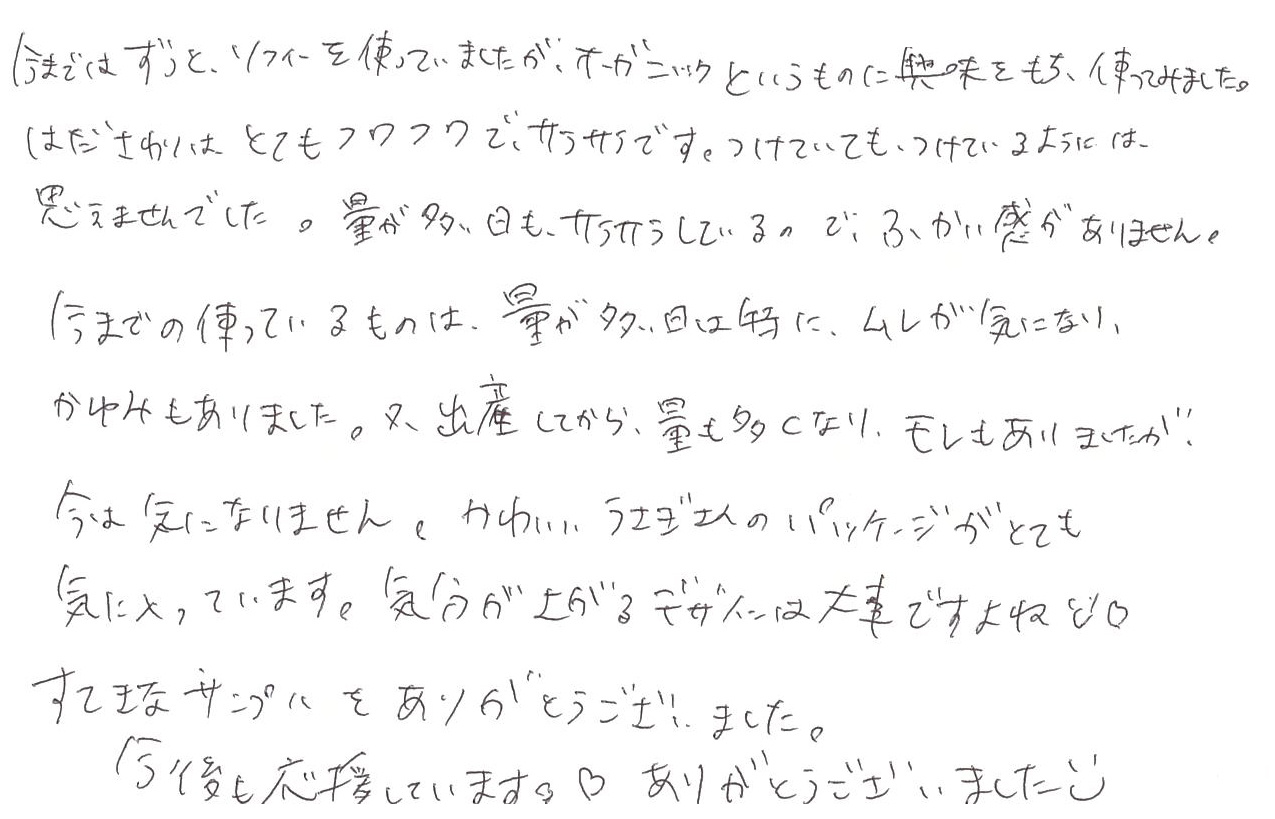 今まではずっと、ソフィーを使っていましたが、オーガニックというものに興味をもち、使ってみました。
はださわりは とてもフワフワで、サラサラです。つけていても、つけているようには、
思えませんでした。量が多い日も、サラサラしているので、ふかい感がありません。
今までの使っているものは、量が多い日は特に、ムレが気になり、
かゆみもありました。又、出産してから、量も多くなり、モレもありましたが、
今は気になりません。かわいいうさぎさんのパッケージがとても
気に入っています。気分が上がるデザインは大事ですよね♡
すてきなサンプルをありがとうございました。
今後も応援しています。♡ ありがとうございました